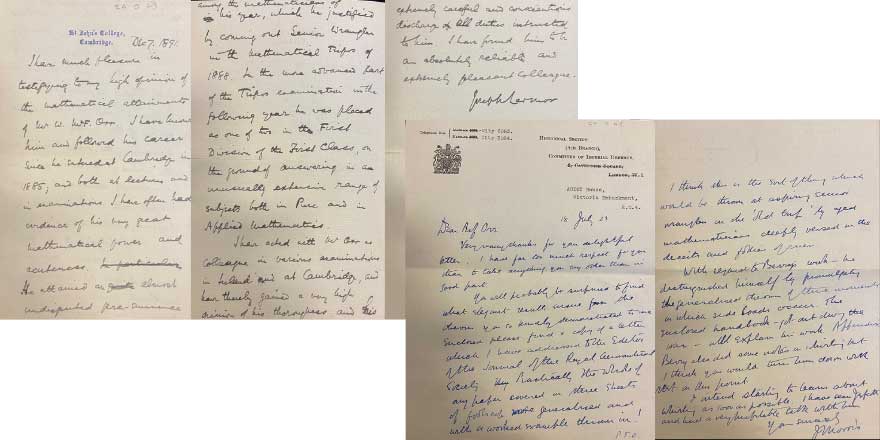 St John's College,
Cambridge.
Dec 7. 1891.
I have much pleasure in
testifying to my high opinion of
the mathematical attainments
of Mr W. McF. Orr. I have known
him and followed his career
since he entered at Cambridge in
1885; and both at lectures and
in examinations I have often had
evidence of his very great
mathematical power and
acuteness. in particular
He attained an almost
undisputed pre-eminence
among the mathematicians of
his year, which he justified
by coming out Senior Wrangler
in the Mathematical Tripos of
1888. In the more advanced part
of the Tripos examination in the
following year he was placed
as one of two in the First
Division of the First Class, on
the ground of answering in an
unusually extensive range of
subjects both in Pure and in
Applied Mathematics.
I have acted with Mr Orr as
colleague in various examinations
in Ireland and at Cambridge, and
have thereby gained a very high
opinion of his thoroughness and his
extremely careful and conscientious
discharge of all duties intrusted
to him. I have found him to be
an absolutely reliable and
extremely pleasant colleague.
Joseph Larmor
City
City
Historical Section
Committee of Imperial Defence,
2, Cavendish Square,
London, W.1
Audit House,
Victoria Embankment,
E.C.4.
18 July 23
Dear Prof Orr
Very many thanks for your delightful
letter. I have far too much respect for you
than to take anything you say other than in
good part.
You will probably be surprised to find
what elegant results arise from the
theorem you so kindly demonstrated to me
Enclosed please find a copy of a letter
which I have addressed to the Editor
of the Journal of the Royal Aeronautical
Society. Practically the whole of
my paper covered in three sheets
of foolscap more generalised and
with a worked example thrown in!
P.T.O.
I think this is the sort of thing which
would be thrown at aspiring senior
wranglers in the "Old Days" by aged
mathematicians deeply versed in the
deceits and
With regard to Berry's work - he
distinguished himself by promulgating
the generalised theorem of three moments
in which end loads occur. The
enclosed handbook - got out during the
war - will explain his work Appendix
Berry also did some notes on whirling but
I think you would turn him down with
on this point
I intend starting to learn about
whirling as soon as possible. I have seen
and had a very profitable talk with him
Yours sincerely
J Morris